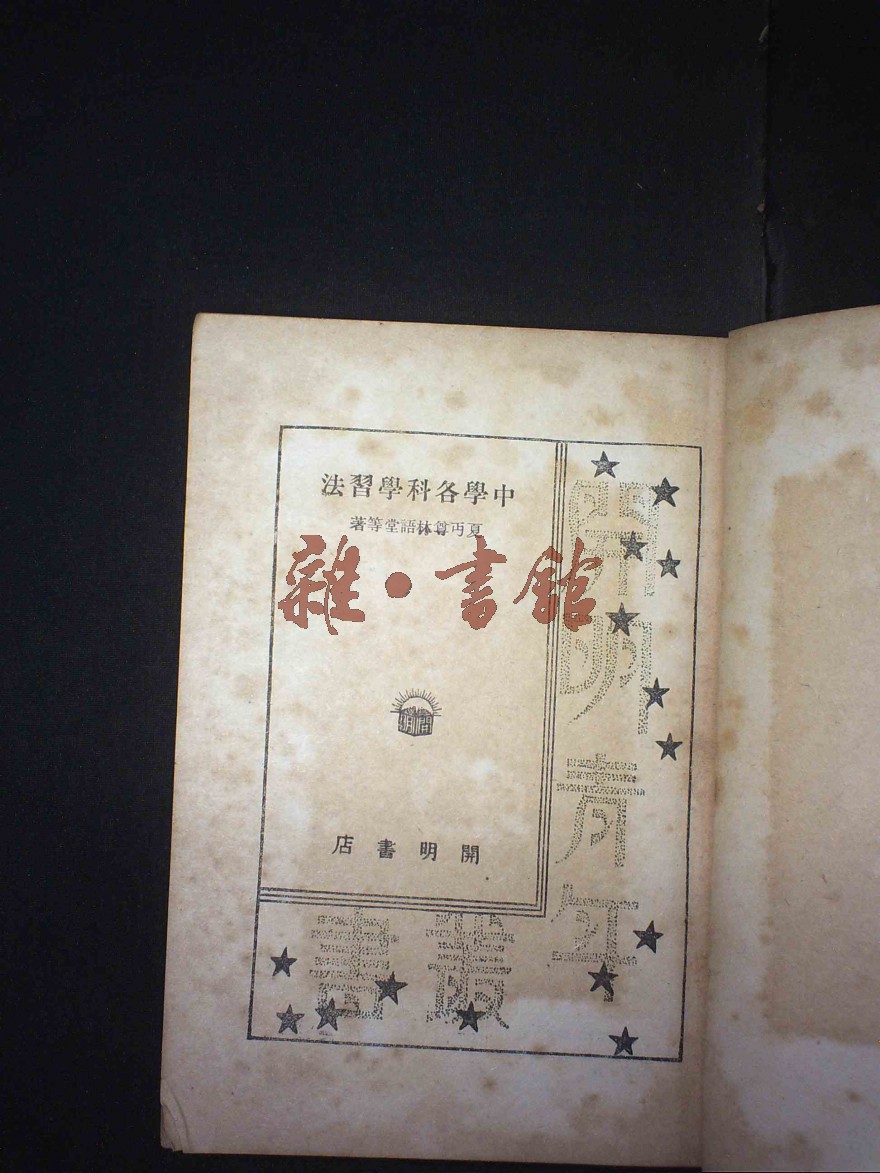 中學各科學習法
夏丏尊林語堂等著
雜·書館
開明
開明書店
開明青年
叢書